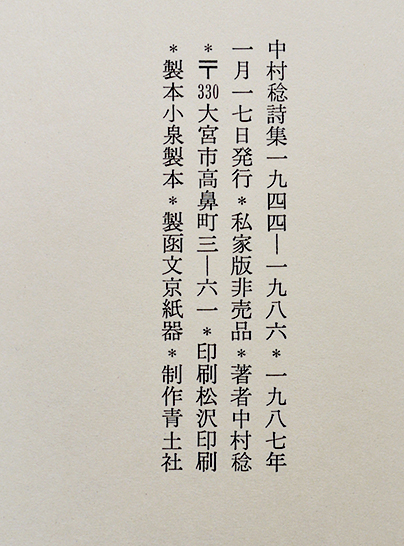 中村稔詩集一九四四―一九八六＊一九八七年
一月一七日発行＊私家版非売品＊著者中村稔
＊〒330大宮市高鼻町三―六一＊印刷松沢印刷
＊製本小泉製本＊製函文京紙器＊制作青土社